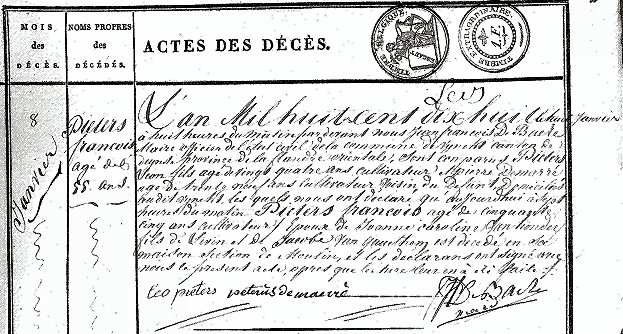 MOIS
des
DÉCÈS.
NOMS PROPRES
des
DÉCÉDÉS.
ACTES DES DÉCÈS.
TIMBRE EXTRAORDINAIRE
8
Janvier
Pieters
françois
agé de
55 ans.
L'an Mil huit cent dix huit le huit Janvier
à huit heures du matin par devant nous Jean françois De Backe
Maire officier de l'état civil de la commune canton de
province de la flandre orientale; Sont comparus Pieters
Jean fils agé de vingt quatre ans cultivateur, & pierre Demarré
agé de trente neuf ans cultivateur voisin du Defunt Domiciliés
les quels nous ont declaré qu'aujourd'hui à Sept
heures du matin Pieters françois agé de cinquante
cinq ans cultivateur, Epoux de Joanne caroline
fils de Livin et de Van est décedé en Sa
maison Section de Moulin, et les declarans ont signé avec
nous le present acte après que lecture leur en a été faite.
Leo pieters petrus de
De Back